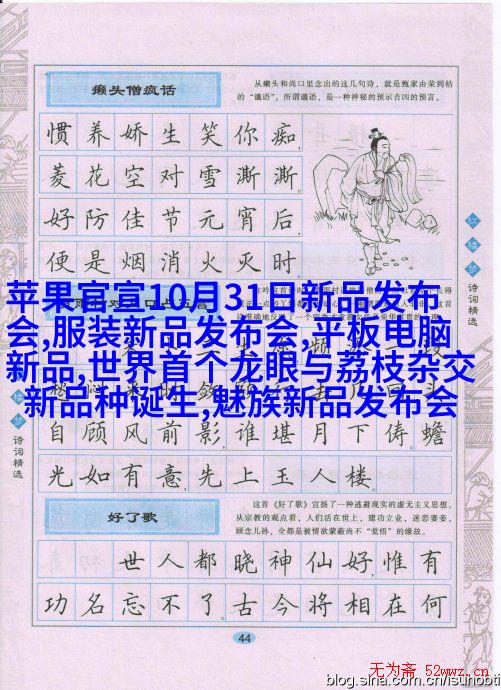 癞头僧疯话
从癞头和尚口里念出的这几句诗，就是甄家由荣到枯
的“谶语”。所谓谶语，是一种神秘的预示吉凶的预言。
惯养娇生笑你痴，
菱花空对雪澌澌。
好防佳节元宵后，
便是烟消火灭时
苹果官宣10月31日新品发布
会,服装新品发布会,平板电脑
新品,世界首个龙眼与荔枝杂交
新品种诞生,魅族新品发布会
自顾风前影，谁堪月下俦蟾
光如有意，先上玉人楼。
好了歌
这首《好了歌》宣扬了一种逃避现实的虚无主义思想。
从宗教的观点看，人们活在世上，建功立业，迷恋妻妾，
顾念儿孙，全都是被情欲蒙蔽尚不“觉悟”的缘故。
世人都晓神仙好，惟有
功名忘不了古今将相在何
44
红楼梦
诗词精选
诗词精选
无为斋 52wwz.cn
blog.sina.com.cn/isunobti